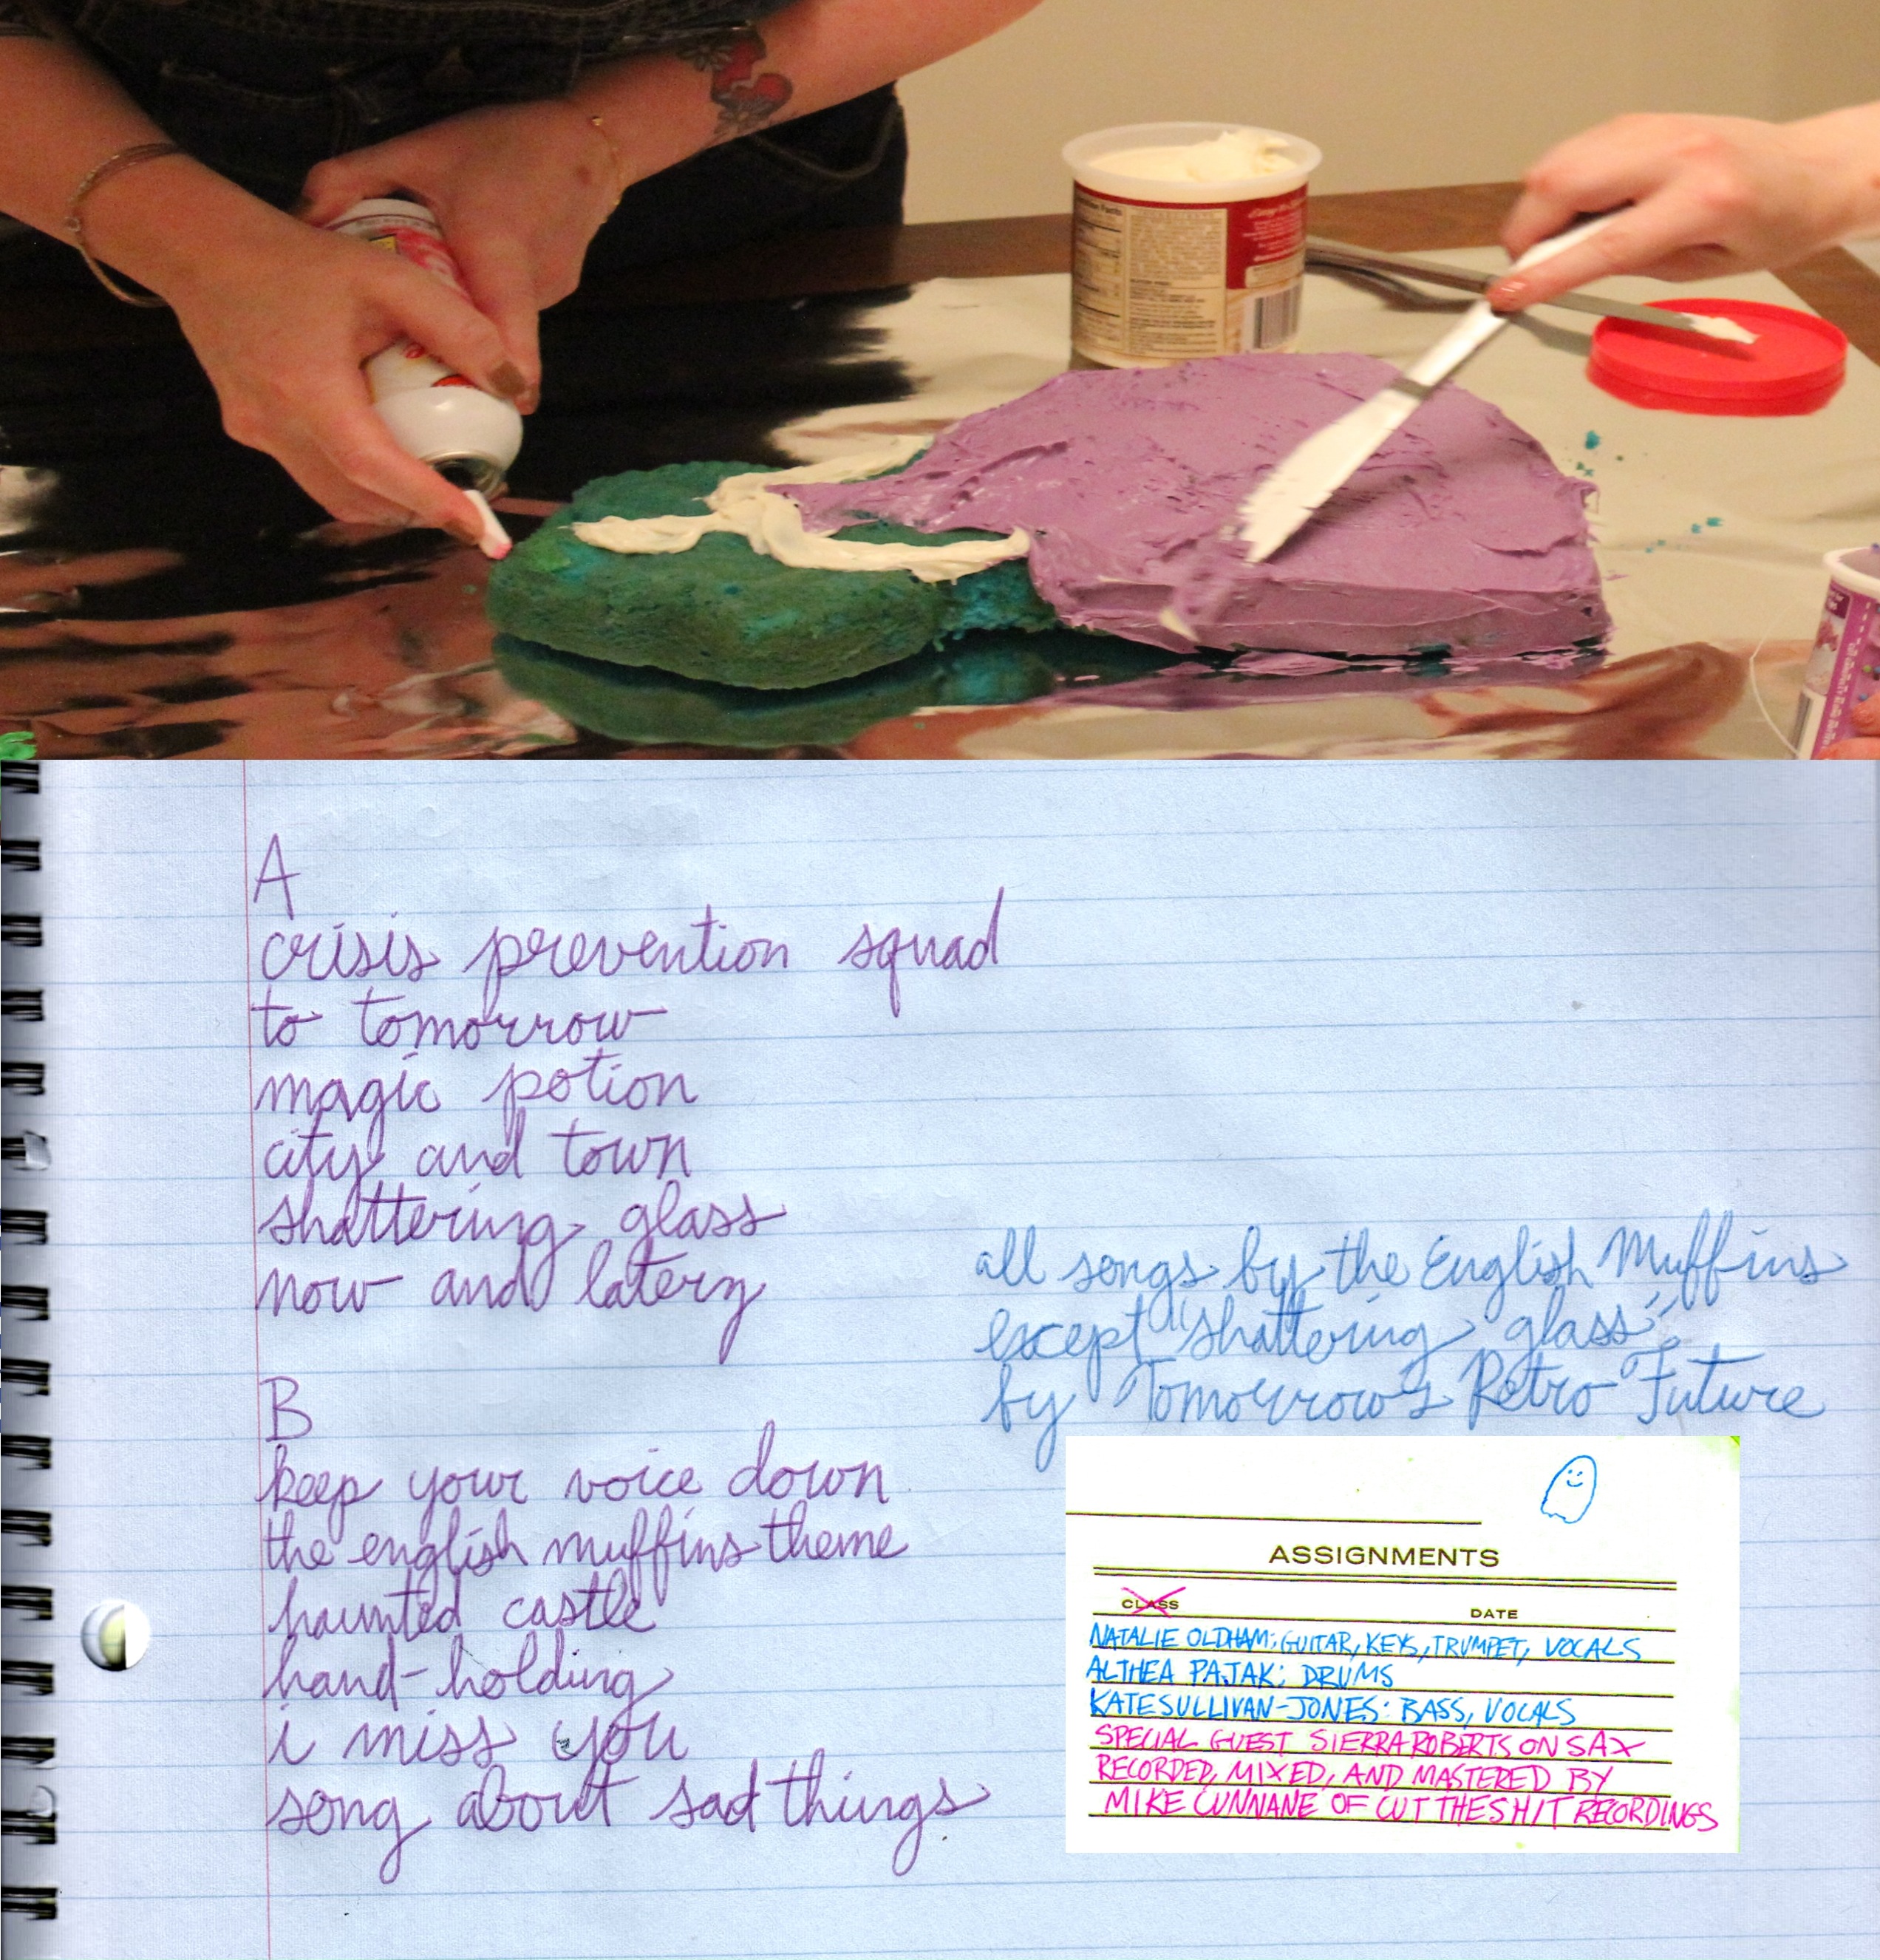 A
crisis prevention squad
to tomorrow
magic potion
city and town
shattering glass
now and laterz
B
keep your voice down
the english muffins theme
haunted castle
hand-holding
i miss you
song about sad things
all songs by the English Muffins
except "shattering glass",
by Tomorrow's Retro Future
ASSIGNMENTS
CLASS DATE
NATALIE OLDHAM: GUITAR, KEYS, TRUMPET, VOCALS
ALTHEA PAJAK: DRUMS
KATE SULLIVAN-JONES: BASS, VOCALS
SPECIAL GUEST SIERRA ROBERTS ON SAX
RECORDED, MIXED, AND MASTERED BY
MIKE CUNNANE OF CUT THE SHIT RECORDINGS